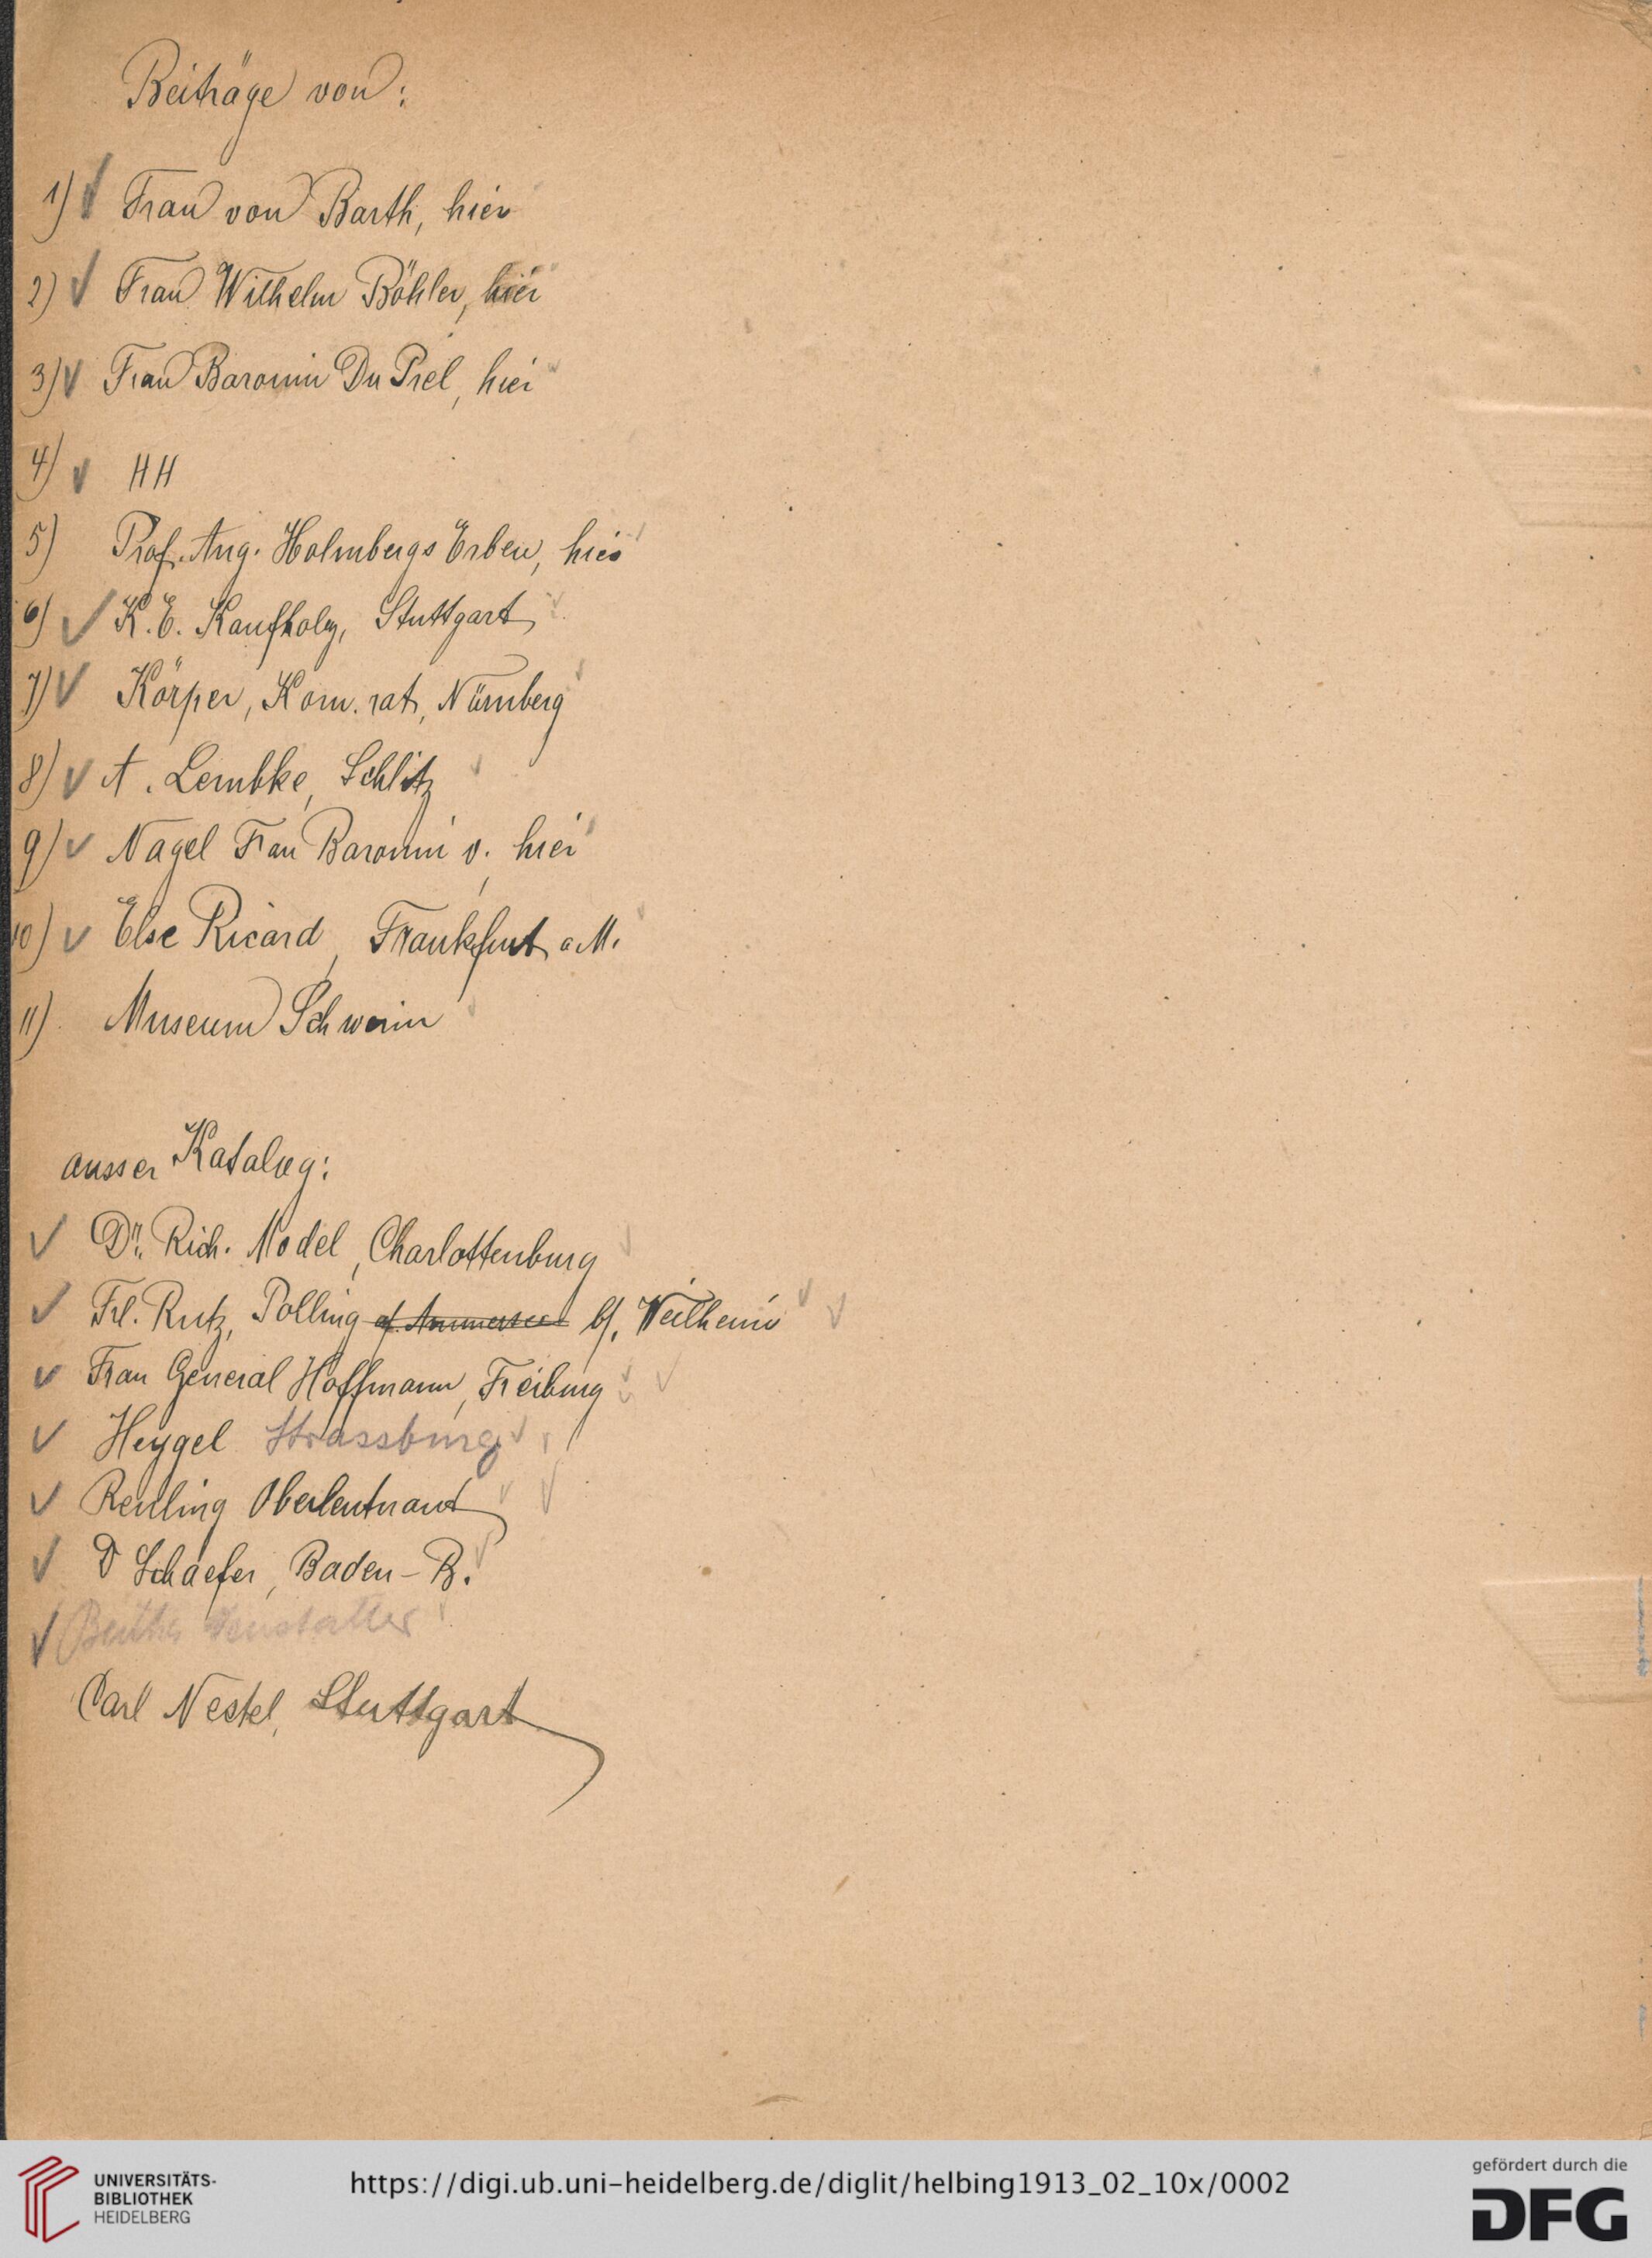 Beiträge von:
1) ✓ Frau von Barth, hier
2) ✓ Frau Wilhelm Böhler, hier
3) ✓ Frau Baronin Du Prel, hier
4) ✓ HH
5) Prof. Aug. Holmbergs Erben, hier
6) ✓ K. E. Kaufholz, Stuttgart
7) ✓ Körper, Kom. rat, Nürnberg
8) ✓ A. Lembke, Schlitz
9) ✓ Nagel Frau Baronin v. hier
10) ✓ Else Ricard, Frankfurt a M.
11) Museum Schwerin
ausser Katalog:
✓ Dr. Rich. Model, Charlottenburg
✓ Frl. Rutz, Polling a/. Ammersee b/. Weilheim
✓ Frau General Hoffmann, Freiburg
✓ Heygel Strassburg
✓ Reuling Oberleutnant
✓ D Schaefer, Baden-B.
✓ Neustatter
Carl Nestel, Stuttgart
UNIVERSITÄTS-
BIBLIOTHEK
HEIDELBERG
https://digi.ub.uni-heidelberg.de/diglit/helbing1913_02_10x/0002
gefördert durch die
DFG